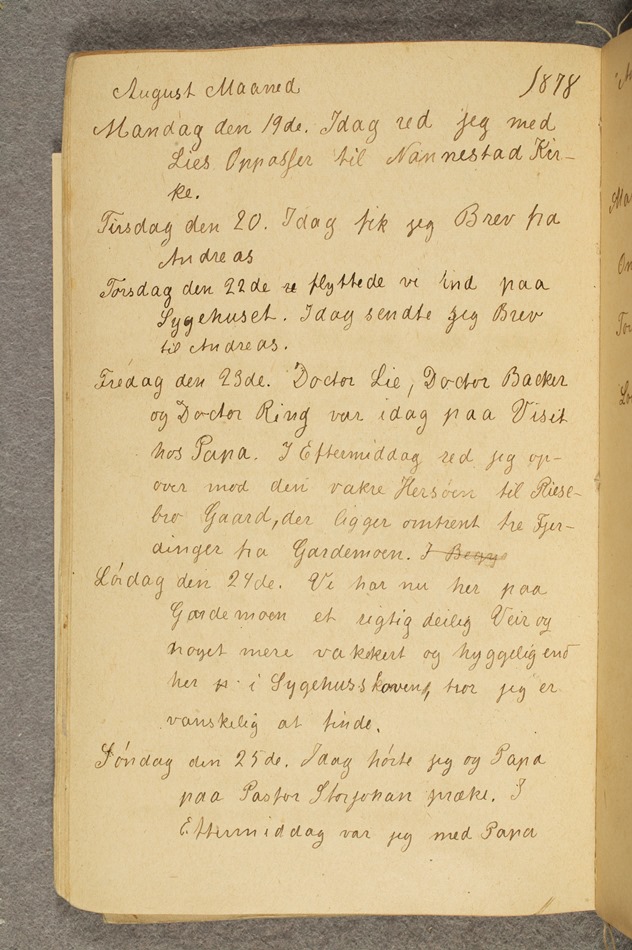 August Maaned 1878
Mandag den 19de. Idag red jeg med
Lies Oppasser til Nannestad Kir-
ke.
Tirsdag den 20. Idag fik jeg Brev fra
Andreas
Torsdag den 22de flyttede vi ind paa
Sygehuset. Idag sendte jeg Brev
til Andreas.
Fredag den 23de. Doctor Lie, Doctor Backer
og Doctor Ring var idag paa Visit
hos Papa. I Eftermiddag red jeg op-
over mod den vakre Hersøen til Riise-
bro Gaard, der ligger omtrent tre Fjer-
dinger fra Gardemoen. I Begy
Lørdag den 24de. Vi har nu her paa
Gardemoen et rigtig deilig Veir og
noget mere vakkert og hyggelig end
her i Sygehusskoven, tror jeg er
vanskelig at finde.
Søndag den 25de. Idag hørte jeg og Papa
paa Pastor Storjohan præke. I
Eftermiddag var jeg med Papa